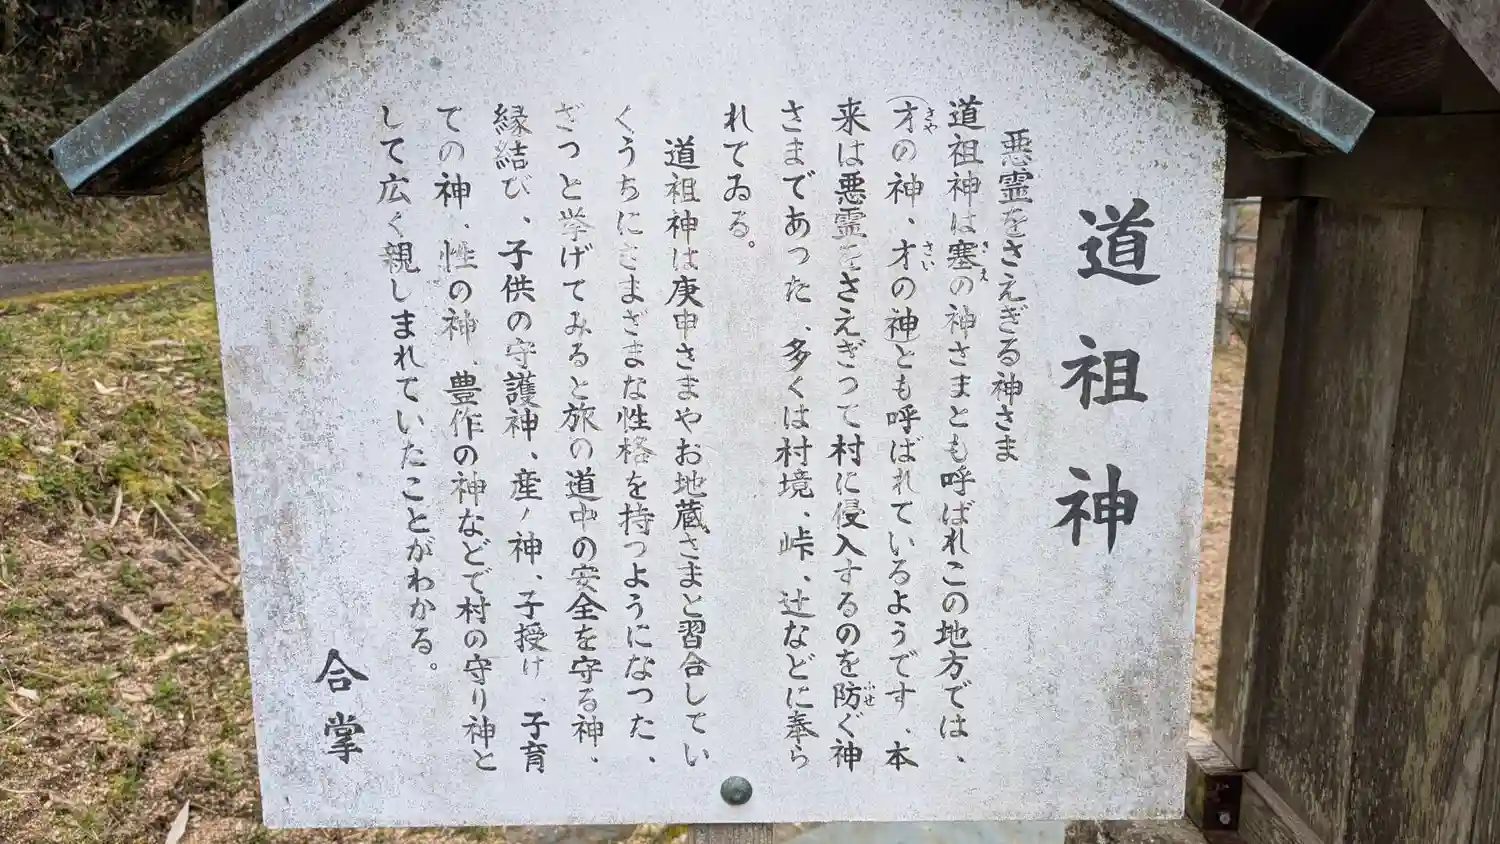 道祖神
悪霊をさえぎる神さま
道祖神は塞の神さまとも呼ばれこの地方では、
(才の神、才の神とも呼ばれているようです、本
来は悪霊をさえぎつて村に侵入するのを防ぐ神
さまであった、多くは村境、峠、辻などに奉ら
れてゐる。
道祖神は庚申さまやお地蔵さまと習合してい
くうちにさまざまな性格を持つようになつた、
ざつと挙げてみると旅の道中の安全を守る神、
縁結び、子供の守護神、産ノ神、子授け、子育
ての神、性の神、豊作の神などで村の守り神と
して広く親しまれていたことがわかる。
合掌